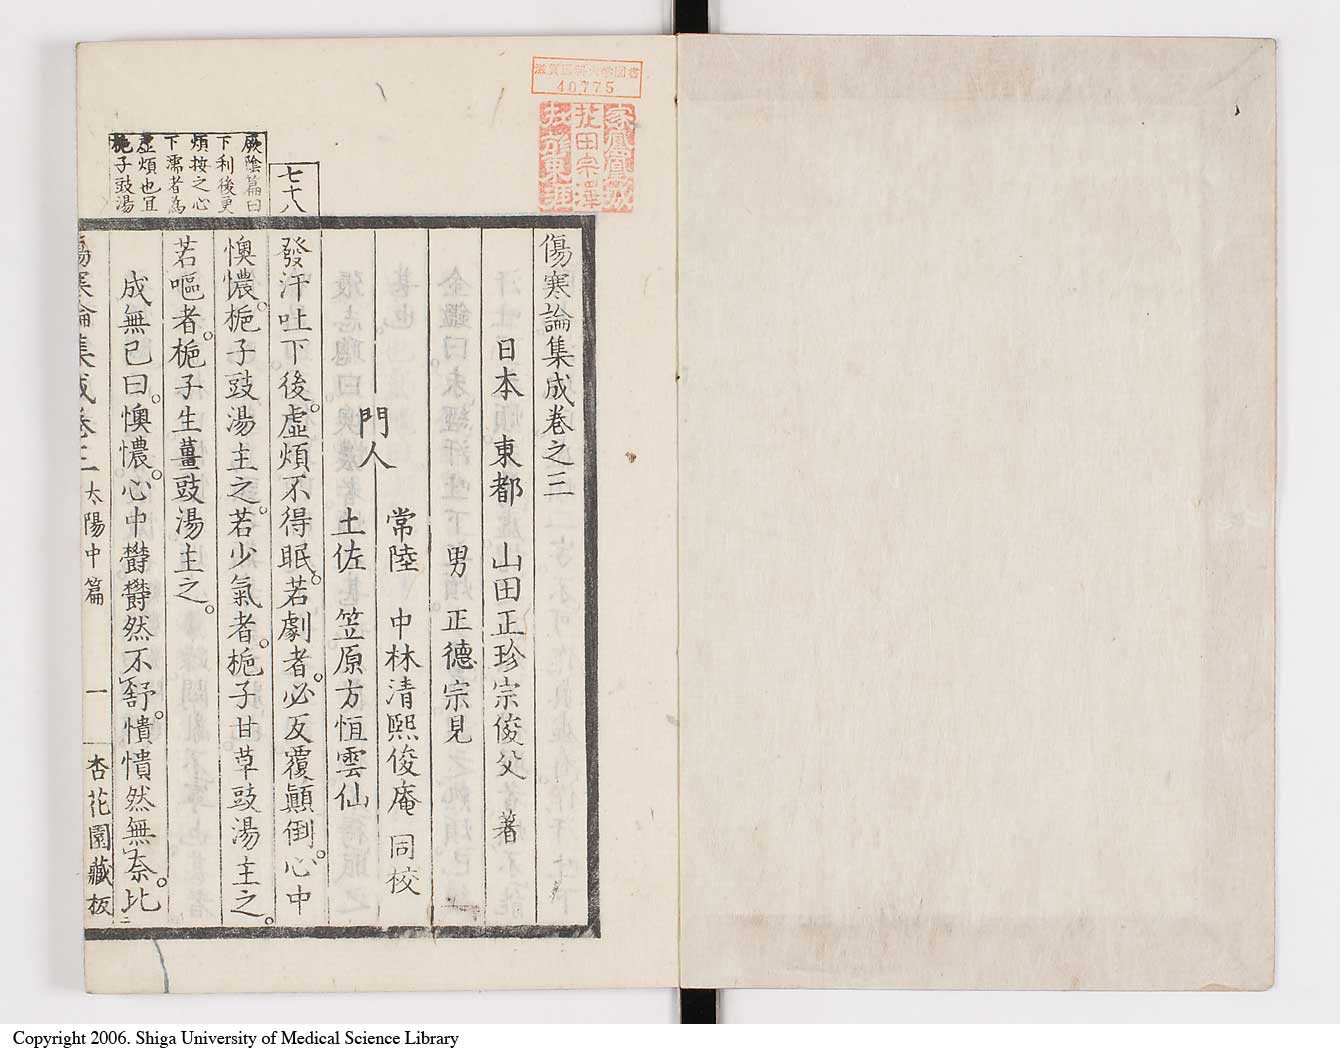 傷寒論集成卷之三
日本 東都 山田正珍宗俊父 著
男 正德宗見
門人 常陸 中林清熙俊庵 同校
土佐 笠原方恒雲仙
七十八
發汗吐下後。虛煩不得眠。若劇者。必反覆顚倒。心中
懊憹。梔子豉湯主之。若少氣者。梔子甘草豉湯主之。
若嘔者。梔子生薑豉湯主之。
厥陰篇曰
下利後更
煩按之心
下濡者爲
虛煩也宜
梔子豉湯
成無已曰。懊憹。心中鬱鬱然不舒。憒憒然無奈。比
傷寒論集成卷三 太陽中篇 一 杏花園藏板
滋賀医科大学図書
40775
家鳳凰城
荘田宗澤
Copyright 2006. Shiga University of Medical Science Library